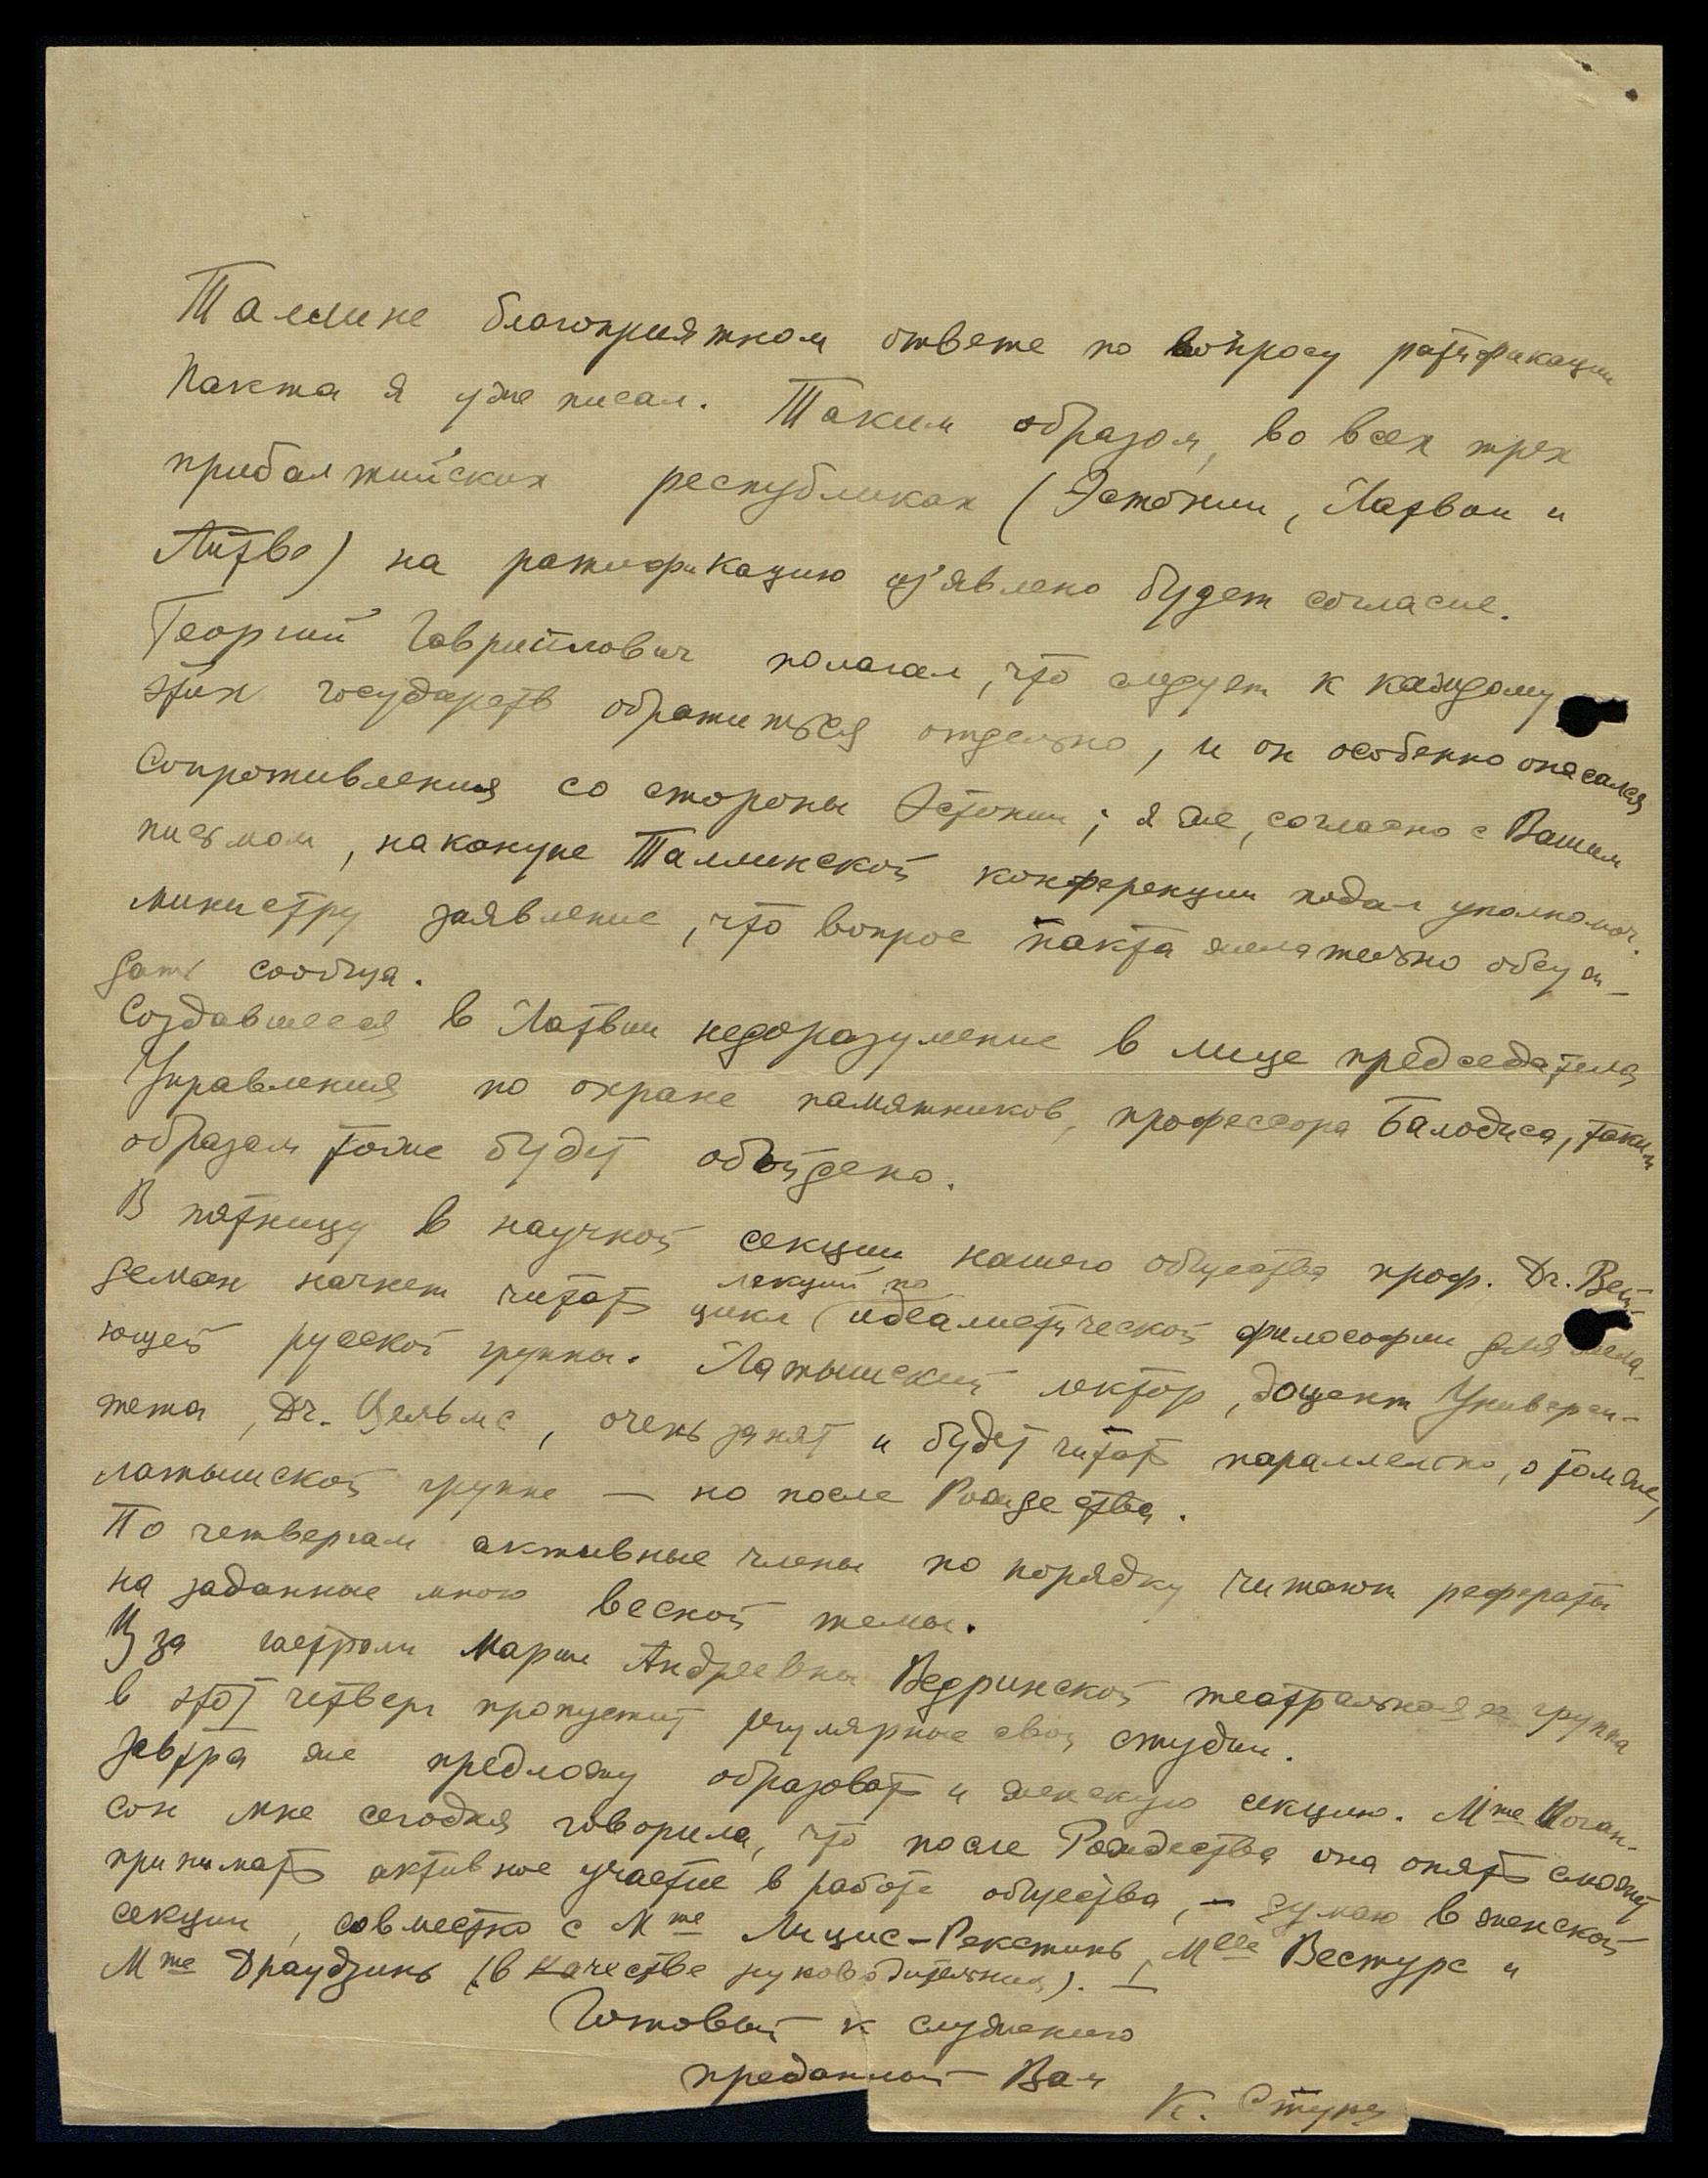 Таллине благоприятном ответе по вопросу ратификации
Пакта я уже писал. Таким образом, во всех трех
прибалтийских республиках (Эстонии, Латвии и
Литве) на ратификацию из'явлено будет согласие.
Георгий Гаврийлович полагал, что следует к каждому
этих государств обратиться отдельно, и он особенно опасался
Сопротивления со стороны Эстонии; я же, согласно с Вашим
письмом, накануне Таллинской конференции подал уполномоч.
министру заявление, что вопрос пакта желательно обсуж-
дать сообща.
Создавшееся в Латвии недоразумение в лице председателя
Управления по охране памятников, профессора Балодиса, таким
образом тоже будет обойдено.
В пятницу в научной секции нашего общества проф. Dr. Вей-
деман начнет читать цикл лекций по идеалистической философии для жела-
ющей русской группы. Латышский лектор, доцент Универси-
тета, Dr. Целмс, очень занят и будет читать параллельно, о том же,
латышской группе — но после Рождества.
По четвергам активные члены по порядку читают рефераты
на заданные мною веской темы.
Из за гастроли Марии Андреевны Ведринской театральная группа
в этот четверг пропустит регулярные свои студии.
Завтра же предложу образовать и женскую секцию. Mme Коган-
сон мне сегодня говорила, что после Рождества она опять сможет
принимать активное участие в работе общества, — думаю в женской
секции, совместно с Mme Лицис-Рекстинь, Mlle Вестурс и
Mme Драудзинь (в качестве руководительниц). —
Готовый к служению
преданный Вам
К. Стурэ